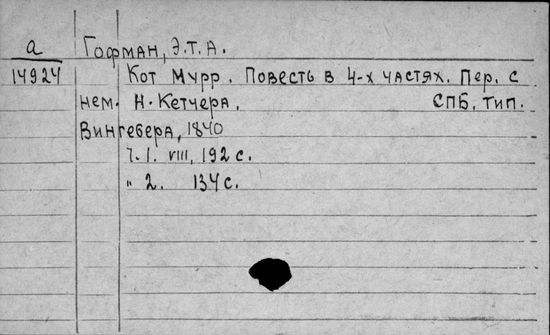 а Гофман, Э.Т.А.
14924 Кот Мурр. Повесть в 4-х частях. Пер. с
нем. Н. Кетчера. СПБ. тип.
Вингебера, 1840
Ч.1. VIII, 192 с.
" 2. 134 с.